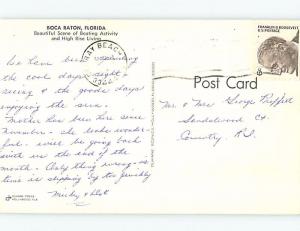 BOCA RATON, FLORIDA
Beautiful Scene of Boating Activity
and High Rise Living
We have been spending
the cool days sight
seeing & the goode days
enjoying the sun.
Mother has been here since
November - she looks wonder-
ful. will be going back
with us the end of the
month. Only thing wrong - is
time is slipping by too quickly
Micky & Dot
RAY BEACH
FRANKLIN D. ROOSEVELT
U.S. POSTAGE
Post Card
Mr. & Mrs. George Proffitt
Sandalwood Ct.
Coventry, R.I.